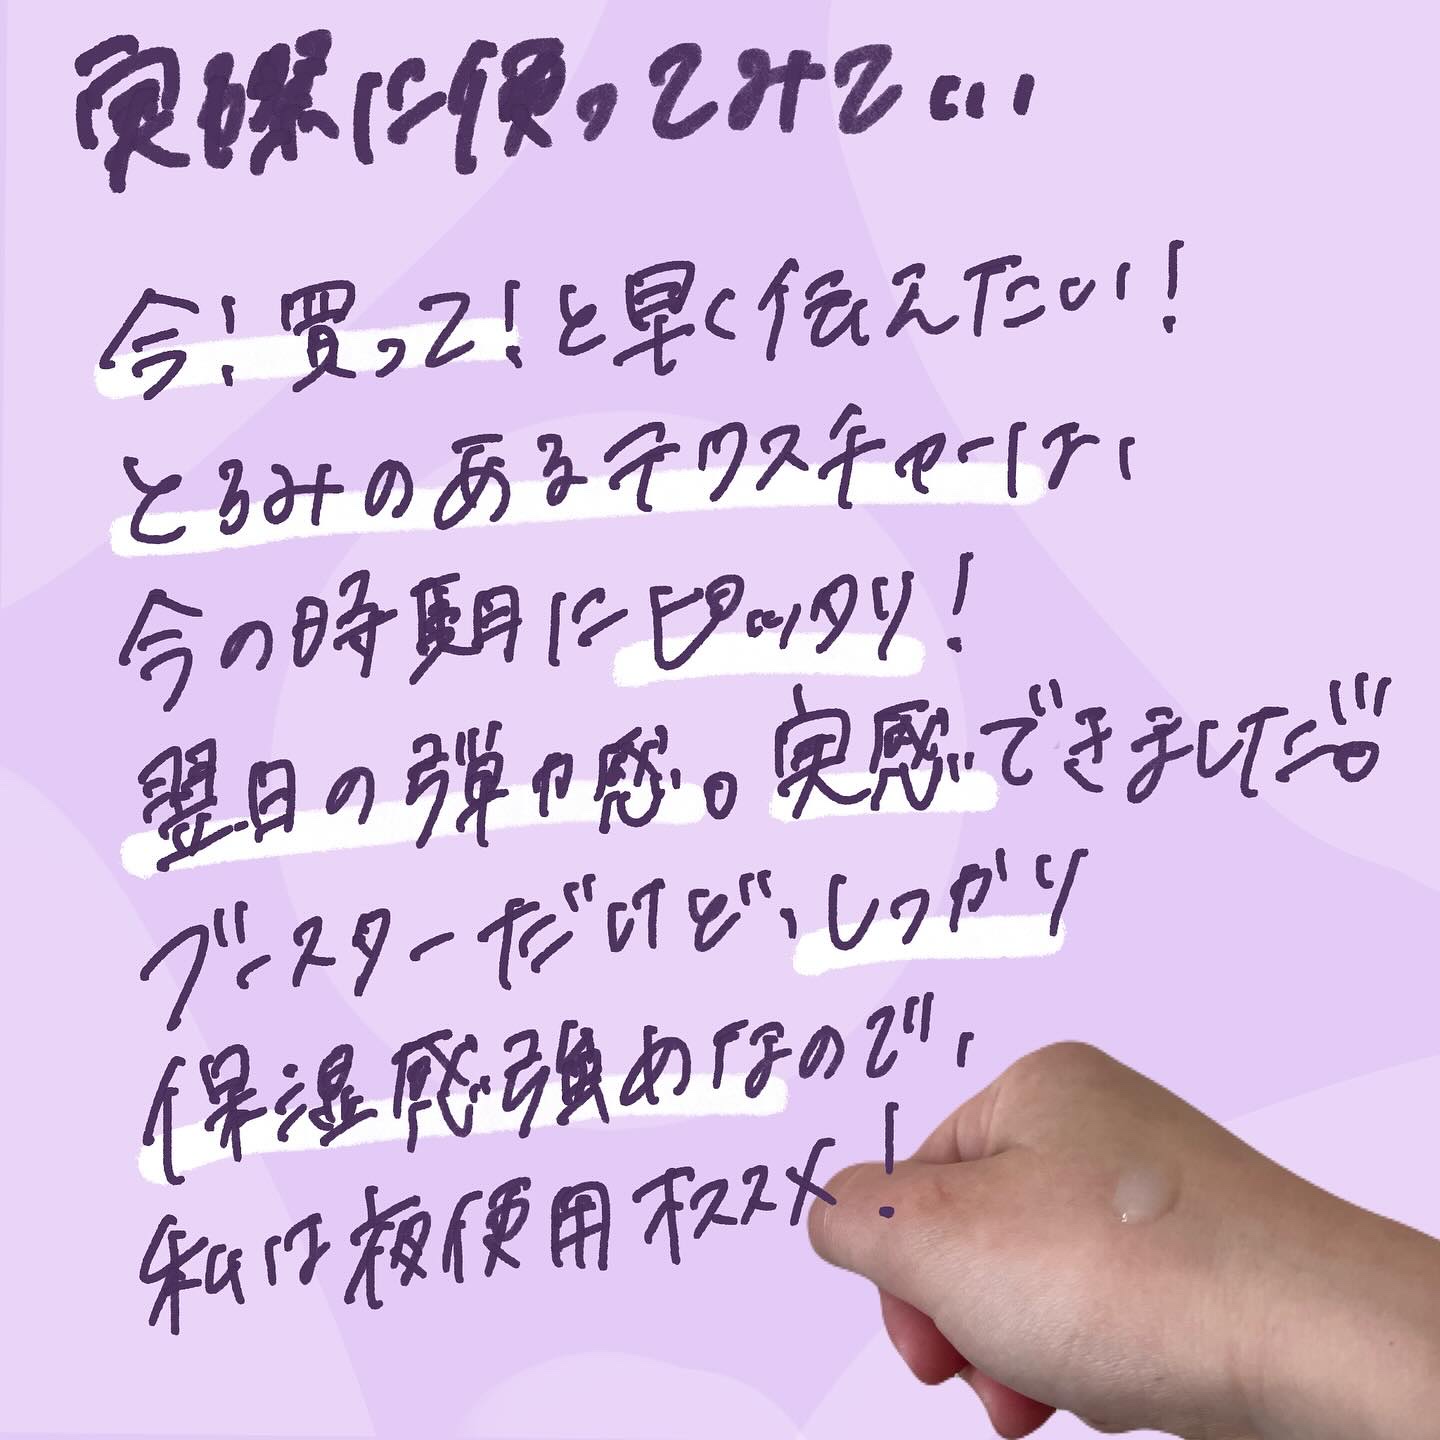 実際に使ってみて…
今！買って！と早く伝えたい！
とろみのあるテクスチャーは、
今の時期にピッタリ！
翌日の弾力感。実感できました!!!。
ブースターだけど、しっかり
保湿感強めなので、
私は夜使用オススメ！